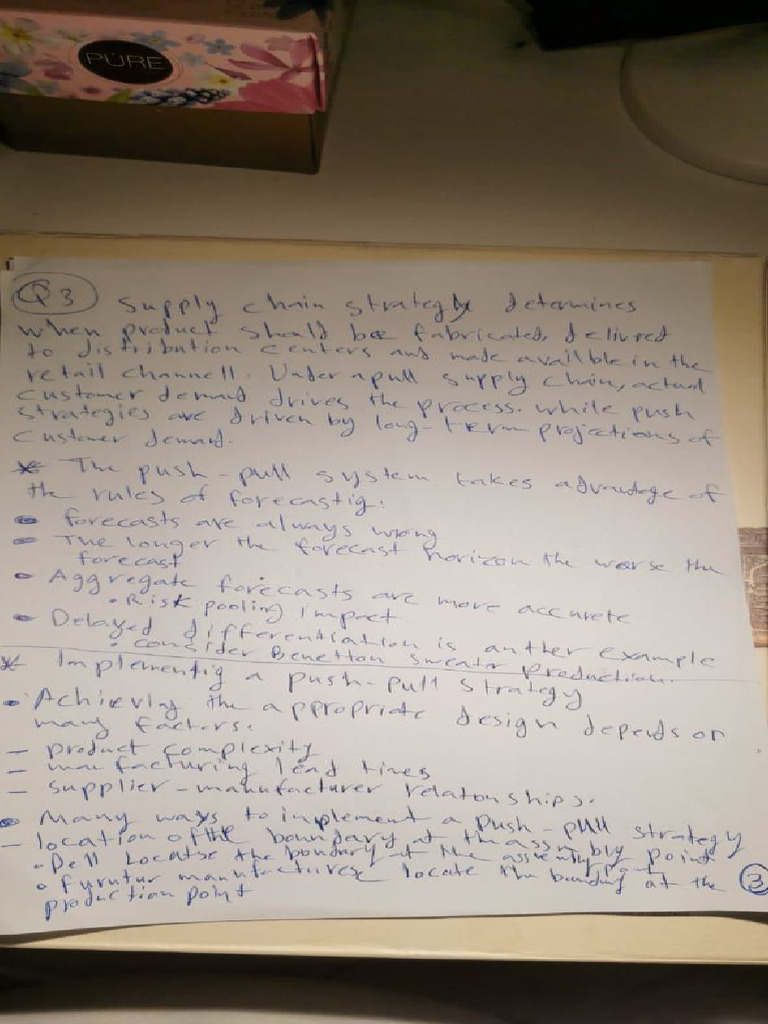 PURE
Q3 Supply chain strategy determines
when product should be fabricated, delivred
to distribution centers and made availble in the
retail channell. Under a pull supply chain, actual
customer demand drives the process. while push
strategies are driven by long-term projections of
customer demand.
* The push-pull system takes advantage of
the rules of forecastig:
- forecasts are always wrong
- The longer the forecast horizon the worse the
forecast
- Aggregate forecasts are more accurete
• Risk pooling impact
- Delayed differentiation is anther example
• consider Benetton sweater production.
* Implementig a push-pull strategy
- Achievig the appropriate design depends on
many factors.
- product complexity
- manufacturing lead times
- supplier-manufacturer relationships.
- Many ways to implement a push-pull strategy
- location of the boundary at the assmbly point
• Dell Locatse the boundary at the assembly point
• furnitur manufactures locate the at the
production point
3